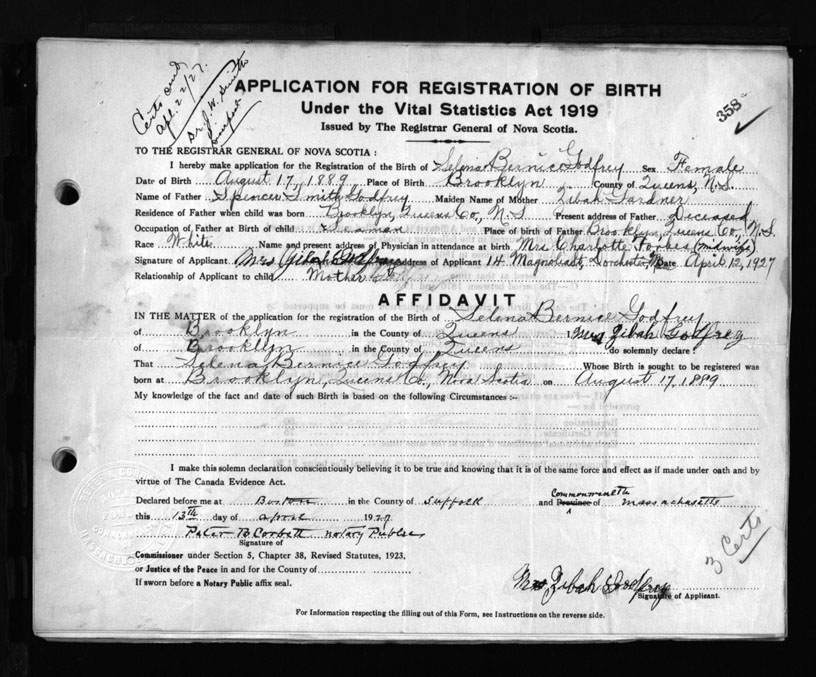 Certs and
Apl. 22/27.
Dr. J. W. Smith
358
APPLICATION FOR REGISTRATION OF BIRTH
Under the Vital Statistics Act 1919
Issued by The Registrar General of Nova Scotia.
TO THE REGISTRAR GENERAL OF NOVA SCOTIA :
I hereby make application for the Registration of the Birth of Selena Bernice Godfrey Sex Female
Date of Birth August 17, 1889 Place of Birth Brooklyn County of Queens, N.S.
Name of Father Spencer Smith Godfrey Maiden Name of Mother Zibah Gardner
Residence of Father when child was born Brooklyn, Queens Co., N.S Present address of Father Deceased
Occupation of Father at Birth of child Seaman Place of birth of Father Brooklyn, Queens Co., N.S
Race White Name and present address of Physician in attendance at birth Mrs Charlotte Forbes (midwife)
Signature of Applicant Mrs Zibah Godfrey address of Applicant 14 Magnolia St, Dorchester, Date April 12, 1927
Relationship of Applicant to child Mother
AFFIDAVIT
IN THE MATTER of the application for the registration of the Birth of Selena Bernice Godfrey
of Brooklyn in the County of Queens I Mrs Zibah Godfrey
of Brooklyn in the County of Queens do solemnly declare :
That Selena Bernice Godfrey Whose Birth is sought to be registered was
born at Brooklyn, Queens Co., Nova Scotia on August 17, 1889
My knowledge of the fact and date of such Birth is based on the following Circumstances :-
I make this solemn declaration conscientiously believing it to be true and knowing that it is of the same force and effect as if made under oath and by
virtue of The Canada Evidence Act.
Commonwealth
Declared before me at Boston in the County of Suffolk and Province of Massachusetts
this 13th day of April 1927
Peter B. Corbett Notary Public
Signature of
Commissioner under Section 5, Chapter 38, Revised Statutes, 1923,
or Justice of the Peace in and for the County of
If sworn before a Notary Public affix seal.
3 Certs.
Mrs Zibah Godfrey
Signature of Applicant.
For Information respecting the filling out of this Form, see Instructions on the reverse side.